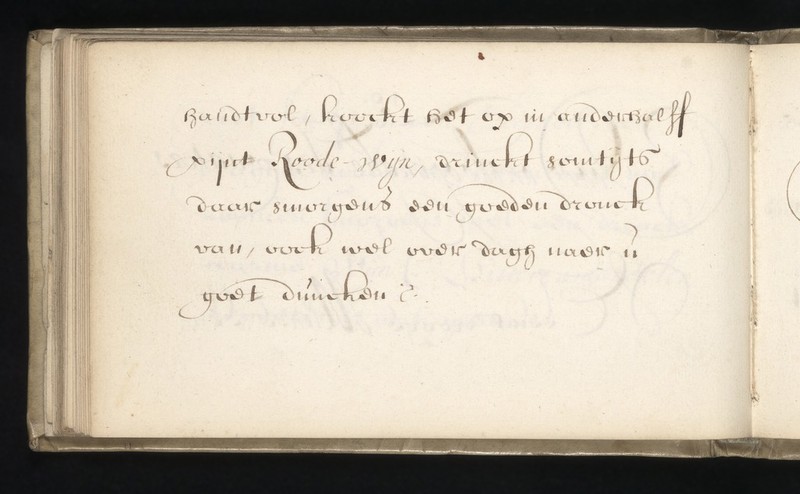 handtvol, koockt het op in anderhalff
pijnt Roode-Wijn, drinckt somtijts
daar smorgens een goeden dronck
van, oock wel over dagh naer ú
goet dúncken &.